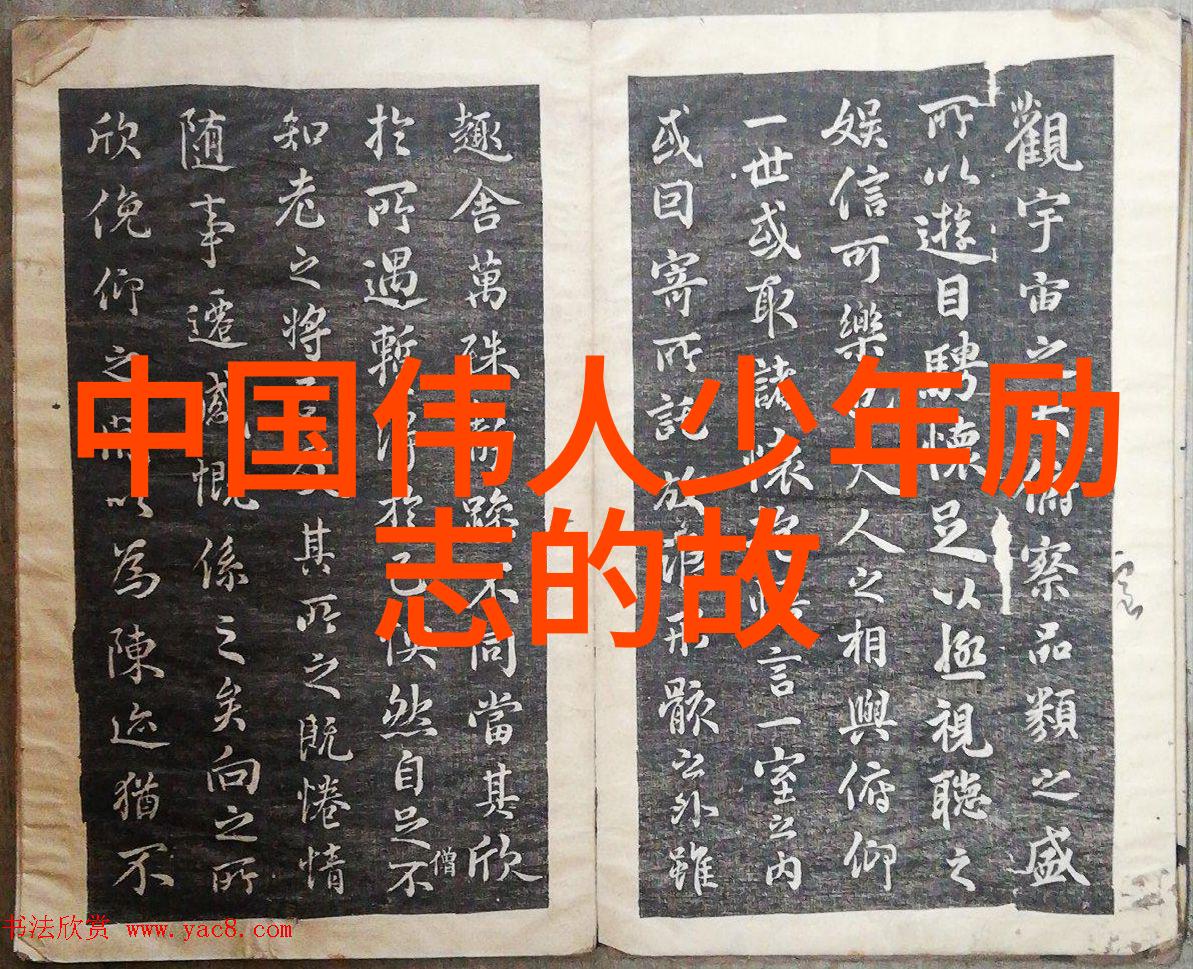 中国伟人少年励
志的故
觀宇宙之大俯察品類之盛
所以遊目騁懷足以極視聽之
娛信可樂也夫人之相與俯仰
一世或取諸懷抱悟言一室之内
或因寄所託放浪形骸之外雖
趣舍萬殊静躁不同當其欣
僧
於所遇暫得於己快然自足不
知老之將至及其所之既惓情
随事遷感慨係之矣向之所
欣俛仰之間以為陳迹猶不
书法欣赏 www.yac8.com